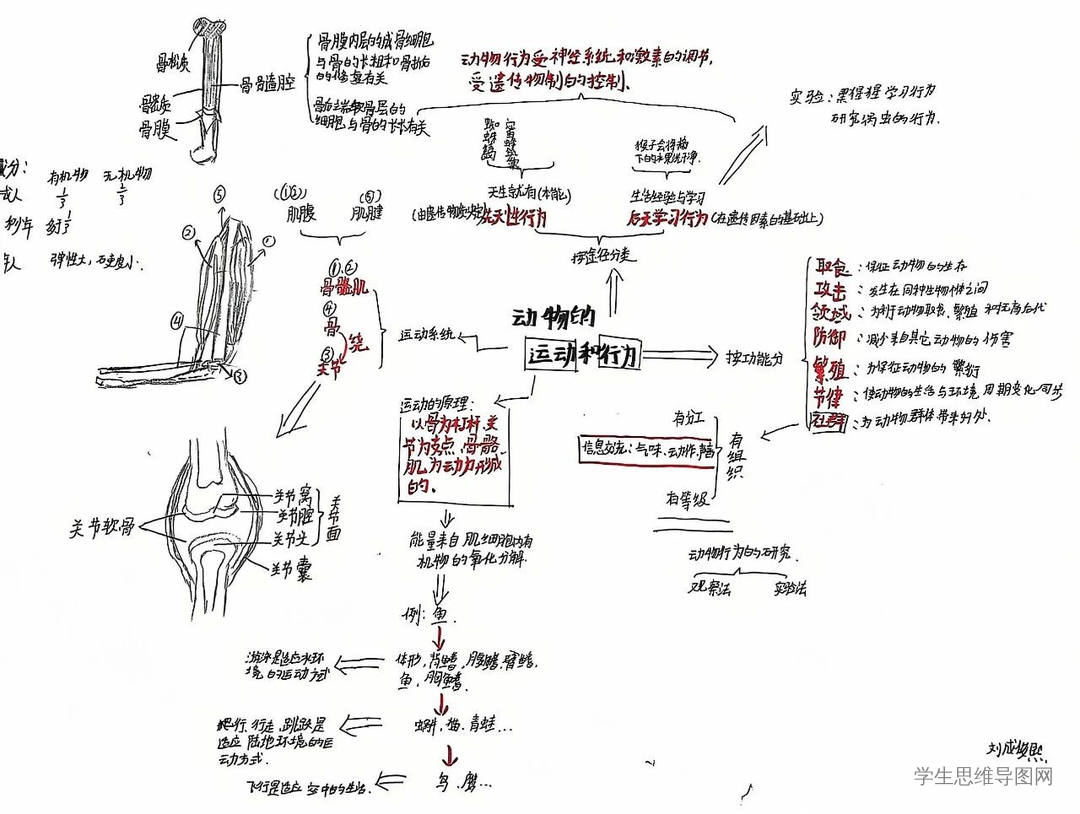 骨松质
骨骨道腔
骨密质
骨膜
骨膜内层的成骨细胞
与骨的长粗和骨折后
的修复有关
骨端软骨层的
细胞与骨的长长有关
动物行为受神经系统和激素的调节,
受遗传物制白的控制.
实验：黑猩猩学习行为
研究病虫的行为.
蜘蛛结
猴子会将落
下的水果洗干净.
天生就有(本能)
生活经验与学习
先天性行为
后天学习行为(在遗传因素的基础上)
按途径分类
成分:
有机物 无机物
成人 1/3 2/3
弹性大,硬度小.
肌腹
肌腱
①、②
骨骼肌
④
骨
绕
③
关节
运动系统
动物的
运动和行为
按功能分
取食：保证动物的生存
攻击：发生在同种生物体之间
领域：为利动物取食、繁殖和抚育后代
防御：减少来自其它动物的伤害
繁殖：为保证动物的繁衍
节律：使动物的生活与环境周期变化同步
社群：为动物群体带来好处.
有分工
信息交流：气味、动作、声音
有等级
有组织
动物行为的研究.
观察法 实验法
运动的原理:
以骨为杠杆.关
节为支点、骨骼
肌为动力形成
的.
能量来自肌细胞内有
机物的氧化分解.
例：鱼.
体形,背鳍,腹鳍,臀鳍,
鱼,胸鳍.
游泳是适应水环
境的运动方式
蜥蜴,猫,青蛙...
爬行、行走、跳跃是
适应陆地环境的运
动方式.
鸟、鹰...
飞行是适应空中的生活.
⑤
②
①
④
③
关节软骨
关节窝
关节腔
关节头
关节囊
关节面
学生思维导图网